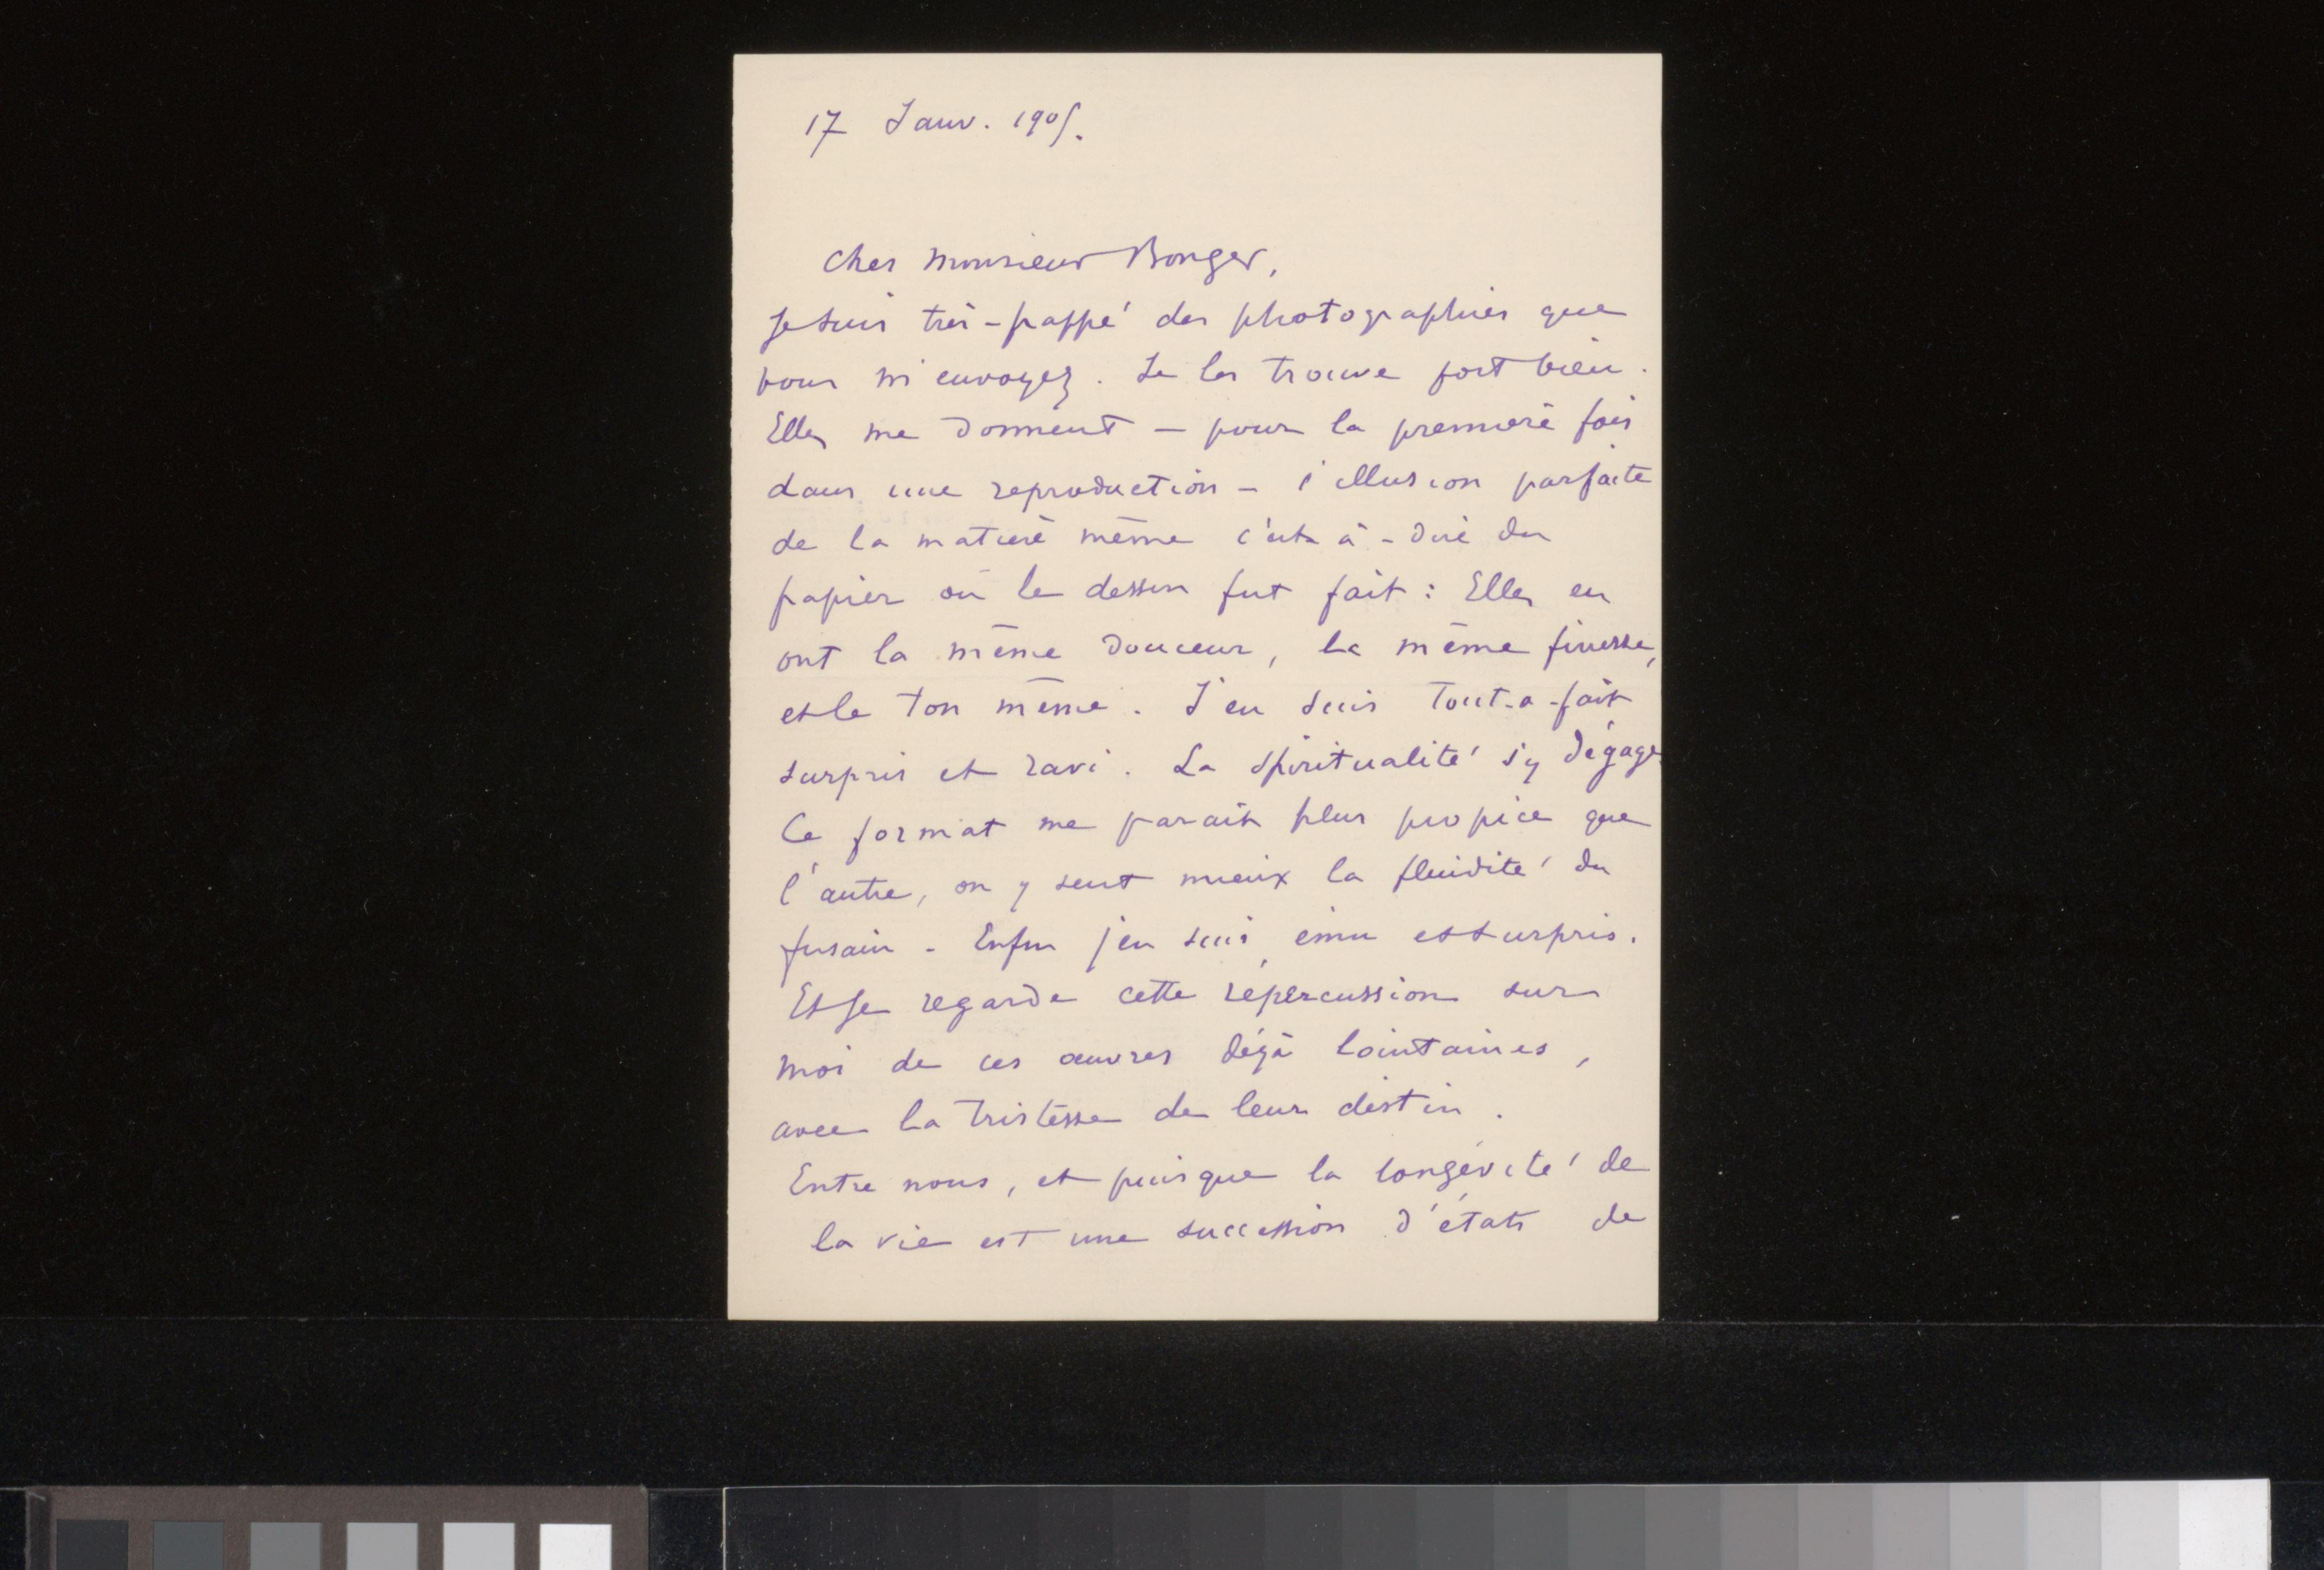 17 Janv. 1905.
Cher Monsieur Bonger,
Je suis très-frappé des photographies que
vous m'envoyez. Je les trouve fort bien.
Elles me donnent – pour la première fois
dans une reproduction – l'illusion parfaite
de la matière même c'est à-dire du
papier où le dessin fut fait : Elles en
ont la même douceur, la même finesse,
et le ton même. J'en suis tout-a-fait
surpris et ravi. La spiritualité s'y dégage.
Ce format me parait plus propice que
l'autre, on y sent mieux la fluidité du
fusain – Enfin j'en suis ému et surpris.
Et Je regarde cette répercussion sur
moi de ces œuvres déjà lointaines,
avec la tristesse de leur destin.
Entre nous, et puisque la longévité de
la vie est une succession d'états de